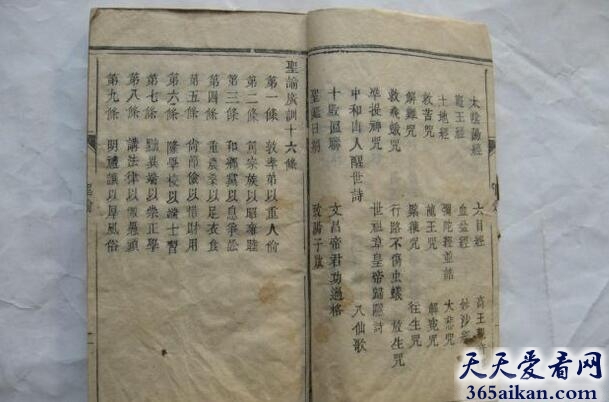 太陰陽經 六目經 高王
竈王經 血盆經
土地經 彌陀經並 大悲咒
救苦咒 龍王咒 解冤咒
解難咒 往生咒
救飛蛾咒 行路不傷虫蟻 放生咒
準提神咒 世祖章皇帝歸隱詩
中和山人醒世詩 八仙歌
十殿 聯 文昌帝君功過格
聖誕日期 陽子
聖諭廣訓十六條
第一條 敦孝弟以重人倫
第二條 篤宗族以昭雍睦
第三條 和鄉黨以息爭訟
第四條 重農桑以足衣食
第五條 尚節儉以惜財用
第六條 隆學校以端士習
第七條 黜異端以崇正學
第八條 講法律以儆愚頑
第九條 明禮讓以厚風俗
聖諭
一
天天爱看网
365aikan.com